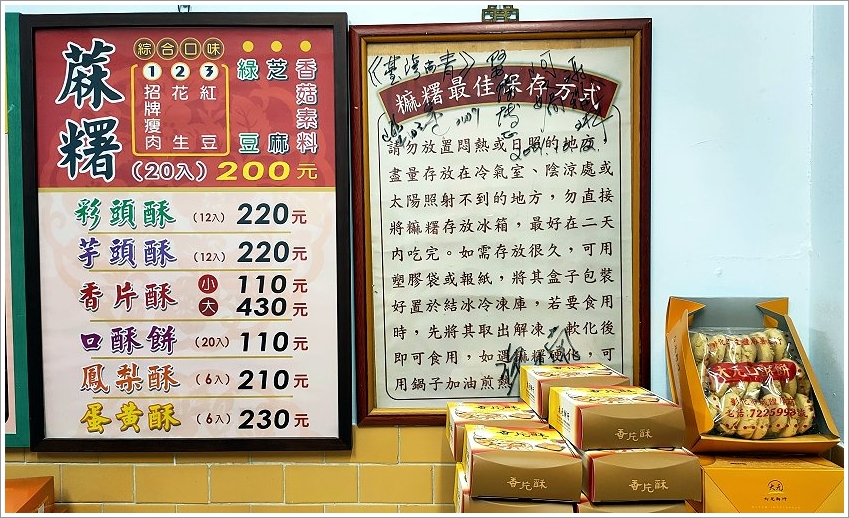 蔴糬
綜合口味
1 2 3
招牌瘦肉
花生
紅豆
綠豆
芝麻
香菇素料
(20入) 200元
彩頭酥 (12入) 220元
芋頭酥 (12入) 220元
香片酥 小 110元
大 430元
口酥餅 (20入) 110元
鳳梨酥 (6入) 210元
蛋黃酥 (6入) 230元
麻糬最佳保存方式
請勿放置悶熱或日照的地方,
盡量存放在冷氣室、陰涼處或
太陽照射不到的地方,勿直接
將麻糬存放冰箱,最好在二天
內吃完。如需存放很久,可用
塑膠袋或報紙,將其盒子包裝
好置於結冰冷凍庫,若要食用
時,先將其取出解凍,軟化後
即可食用,如遇麻糬硬化,可
用鍋子加油煎熱
香片酥
香片酥
香片酥
大元